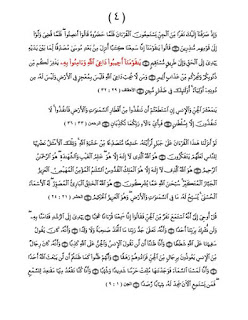 ( ٤ )
وَإِذْ صَرَفْنَا إِلَيْكَ نَفَرًا مِّنَ الْجِنِّ يَسْتَمِعُونَ الْقُرْآنَ فَلَمَّا حَضَرُوهُ قَالُوا أَنصِتُوا فَلَمَّا قُضِيَ وَلَّوْا
إِلَىٰ قَوْمِهِم مُّنذِرِينَ قَالُوا يَا قَوْمَنَا إِنَّا سَمِعْنَا كِتَابًا أُنزِلَ مِن بَعْدِ مُوسَىٰ مُصَدِّقًا لِّمَا بَيْنَ يَدَيْهِ
يَهْدِي إِلَى الْحَقِّ وَإِلَىٰ طَرِيقٍ مُّسْتَقِيمٍ يَا قَوْمَنَا أَجِيبُوا دَاعِيَ اللَّهِ وَآمِنُوا بِهِ يَغْفِرْ لَكُم مِّن
ذُنُوبِكُمْ وَيُجِرْكُم مِّنْ عَذَابٍ أَلِيمٍ وَمَن لَّا يُجِبْ دَاعِيَ اللَّهِ فَلَيْسَ بِمُعْجِزٍ فِي الْأَرْضِ وَلَيْسَ لَهُ مِن
دُونِهِ أَوْلِيَاءُ أُولَٰئِكَ فِي ضَلَالٍ مُّبِينٍ
يَا مَعْشَرَ الْجِنِّ وَالْإِنسِ إِنِ اسْتَطَعْتُمْ أَن تَنفُذُوا مِنْ أَقْطَارِ السَّمَاوَاتِ وَالْأَرْضِ فَانفُذُوا لَا
تَنفُذُونَ إِلَّا بِسُلْطَانٍ فَبِأَيِّ آلَاءِ رَبِّكُمَا تُكَذِّبَانِ
لَوْ أَنزَلْنَا هَٰذَا الْقُرْآنَ عَلَىٰ جَبَلٍ لَّرَأَيْتَهُ خَاشِعًا مُّتَصَدِّعًا مِّنْ خَشْيَةِ اللَّهِ وَتِلْكَ الْأَمْثَالُ نَضْرِبُهَا
لِلنَّاسِ لَعَلَّهُمْ يَتَفَكَّرُونَ هُوَ اللَّهُ الَّذِي لَا إِلَٰهَ إِلَّا هُوَ عَالِمُ الْغَيْبِ وَالشَّهَادَةِ هُوَ الرَّحْمَٰنُ
الرَّحِيمُ هُوَ اللَّهُ الَّذِي لَا إِلَٰهَ إِلَّا هُوَ الْمَلِكُ الْقُدُّوسُ السَّلَامُ الْمُؤْمِنُ الْمُهَيْمِنُ الْعَزِيزُ
الْجَبَّارُ الْمُتَكَبِّرُ سُبْحَانَ اللَّهِ عَمَّا يُشْرِكُونَ هُوَ اللَّهُ الْخَالِقُ الْبَارِئُ الْمُصَوِّرُ لَهُ الْأَسْمَاءُ
الْحُسْنَىٰ يُسَبِّحُ لَهُ مَا فِي السَّمَاوَاتِ وَالْأَرْضِ وَهُوَ الْعَزِيزُ الْحَكِيمُ
قُلْ أُوحِيَ إِلَيَّ أَنَّهُ اسْتَمَعَ نَفَرٌ مِّنَ الْجِنِّ فَقَالُوا إِنَّا سَمِعْنَا قُرْآنًا عَجَبًا يَهْدِي إِلَى الرُّشْدِ فَآمَنَّا بِهِ
وَلَن نُّشْرِكَ بِرَبِّنَا أَحَدًا وَأَنَّهُ تَعَالَىٰ جَدُّ رَبِّنَا مَا اتَّخَذَ صَاحِبَةً وَلَا وَلَدًا وَأَنَّهُ كَانَ يَقُولُ
سَفِيهُنَا عَلَى اللَّهِ شَطَطًا وَأَنَّا ظَنَنَّا أَن لَّن تَقُولَ الْإِنسُ وَالْجِنُّ عَلَى اللَّهِ كَذِبًا وَأَنَّهُ كَانَ رِجَالٌ
مِّنَ الْإِنسِ يَعُوذُونَ بِرِجَالٍ مِّنَ الْجِنِّ فَزَادُوهُمْ رَهَقًا وَأَنَّهُمْ ظَنُّوا كَمَا ظَنَنتُمْ أَن لَّن يَبْعَثَ اللَّهُ أَحَدًا
وَأَنَّا لَمَسْنَا السَّمَاءَ فَوَجَدْنَاهَا مُلِئَتْ حَرَسًا شَدِيدًا وَشُهُبًا وَأَنَّا كُنَّا نَقْعُدُ مِنْهَا مَقَاعِدَ لِلسَّمْعِ
فَمَن يَسْتَمِعِ الْآنَ يَجِدْ لَهُ شِهَابًا رَّصَدًا